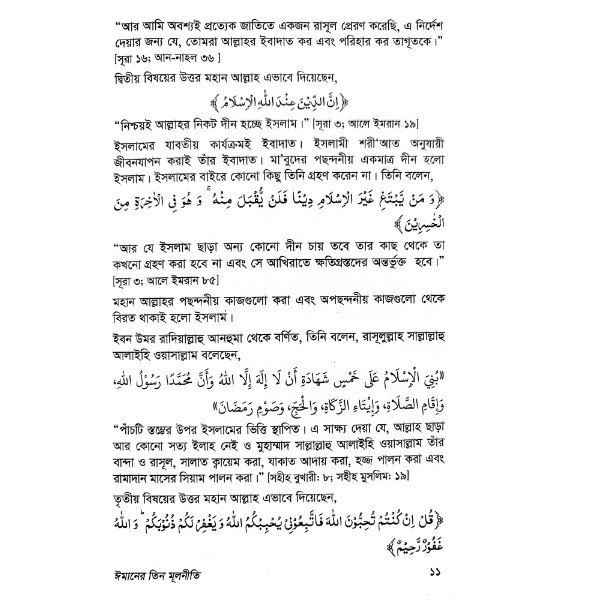 “আর আমি অবশ্যই প্রত্যেক জাতিতে একজন রাসূল প্রেরণ করেছি, এ নির্দেশ
দেয়ার জন্য যে, তোমরা আল্লাহর ইবাদাত কর এবং পরিহার কর তাগূতকে।”
[সূরা ১৬; আন-নাহল ৩৬ ]
দ্বিতীয় বিষয়ের উত্তর মহান আল্লাহ এভাবে দিয়েছেন,
﴿إِنَّ الدِّيْنَ عِنْدَ اللهِ الْإِسْلَامُ﴾
“নিশ্চয়ই আল্লাহর নিকট দীন হচ্ছে ইসলাম।” [সূরা ৩; আলে ইমরান ১৯]
ইসলামের যাবতীয় কার্যক্রমই ইবাদাত। ইসলামী শরী‘আত অনুযায়ী
জীবনযাপন করাই তাঁর ইবাদাত। মা‘বুদের পছন্দনীয় একমাত্র দীন হলো
ইসলাম। ইসলামের বাইরে কোনো কিছু তিনি গ্রহণ করেন না। তিনি বলেন,
﴿وَ مَنْ يَّبْتَغِ غَيْرَ الْاِسْلَامِ دِيْنًا فَلَنْ يُّقْبَلَ مِنْهُ ۚ وَ هُوَ فِي الْاٰخِرَةِ مِنَ
الْخٰسِرِيْنَ﴾
“আর যে ইসলাম ছাড়া অন্য কোনো দীন চায় তবে তার কাছ থেকে তা
কখনো গ্রহণ করা হবে না এবং সে আখিরাতে ক্ষতিগ্রস্তদের অন্তর্ভুক্ত হবে।”
[সূরা ৩; আলে ইমরান ৮৫]
মহান আল্লাহর পছন্দনীয় কাজগুলো করা এবং অপছন্দনীয় কাজগুলো থেকে
বিরত থাকাই হলো ইসলাম।
ইবন উমর রাদিয়াল্লাহু আনহুমা থেকে বর্ণিত, তিনি বলেন, রাসূলুল্লাহ সাল্লাল্লাহু
আলাইহি ওয়াসাল্লাম বলেছেন,
«بُنِيَ الْإِسْلَامُ عَلَى خَمْسٍ شَهَادَةِ أَنْ لَا إِلَهَ إِلَّا اللهُ وَأَنَّ مُحَمَّدًا رَسُوْلُ اللهِ،
وَإِقَامِ الصَّلَاةِ، وَإِيْتَاءِ الزَّكَاةِ، وَالْحَجِّ، وَصَوْمِ رَمَضَانَ»
“পাঁচটি স্তম্ভের উপর ইসলামের ভিত্তি স্থাপিত। এ সাক্ষ্য দেয়া যে, আল্লাহ ছাড়া
আর কোনো সত্য ইলাহ নেই ও মুহাম্মাদ সাল্লাল্লাহু আলাইহি ওয়াসাল্লাম তাঁর
বান্দা ও রাসূল, সালাত ক্বায়েম করা, যাকাত আদায় করা, হজ্জ পালন করা এবং
রামাদান মাসের সিয়াম পালন করা।” [সহীহ বুখারী: ৮; সহীহ মুসলিম: ১৯]
তৃতীয় বিষয়ের উত্তর মহান আল্লাহ এভাবে দিয়েছেন,
﴿قُلْ اِنْ كُنْتُمْ تُحِبُّوْنَ اللهَ فَاتَّبِعُوْنِيْ يُحْبِبْكُمُ اللهُ وَ يَغْفِرْ لَكُمْ ذُنُوْبَكُمْ ؕ وَ اللهُ
غَفُوْرٌ رَّحِيْمٌ﴾
ঈমানের তিন মূলনীতি
১১